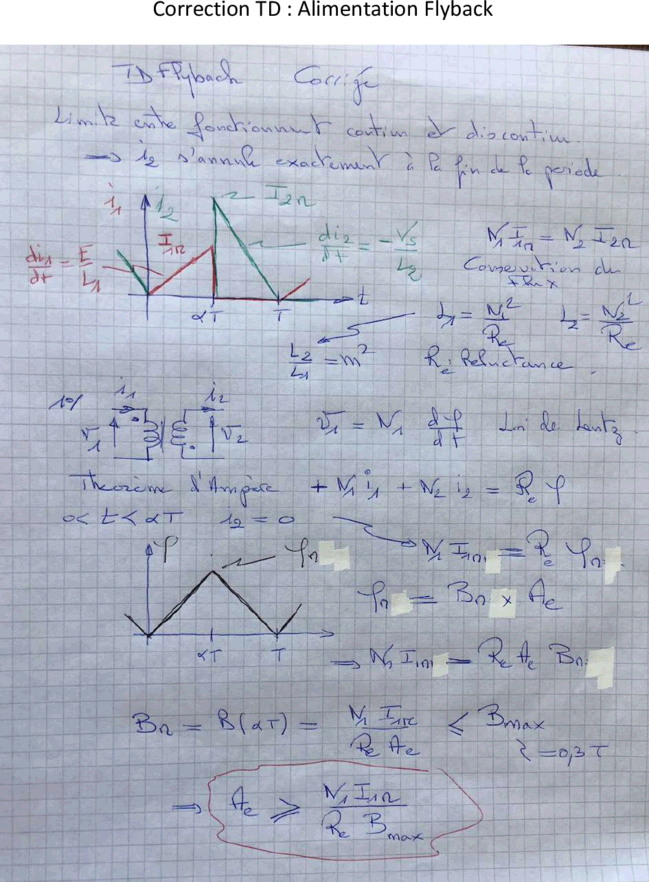 Correction TD : Alimentation Flyback
TD Flyback Corrigé
Limite entre fonctionnement continu et discontinu
⟹ i2 s'annule exactement à la fin de la période.
i1 i2 I2M
I1M
di1/dt = E/L1
di2/dt = -Vs/L2
αT T t
N1 I1M = N2 I2M
Conservation du
flux
L1 = N1²/Re L2 = N2²/Re
L2/L1 = m²
Re : Reluctance.
1°/ i1 i2
v1 v2
v1 = N1 dφ/dt Loi de Lentz.
Théorème d'Ampère + N1 i1 + N2 i2 = Re φ
0< t < αT i2 = 0
N1 I1M = Re φM
φ φM
φM = BM x Ae
αT T
⟹ N1 I1M = Re Ae BM
BM = B(αT) = N1 I1M / Re Ae ≤ Bmax
= 0,3 T
⟹ Ae ⩾ N1 I1M / Re Bmax